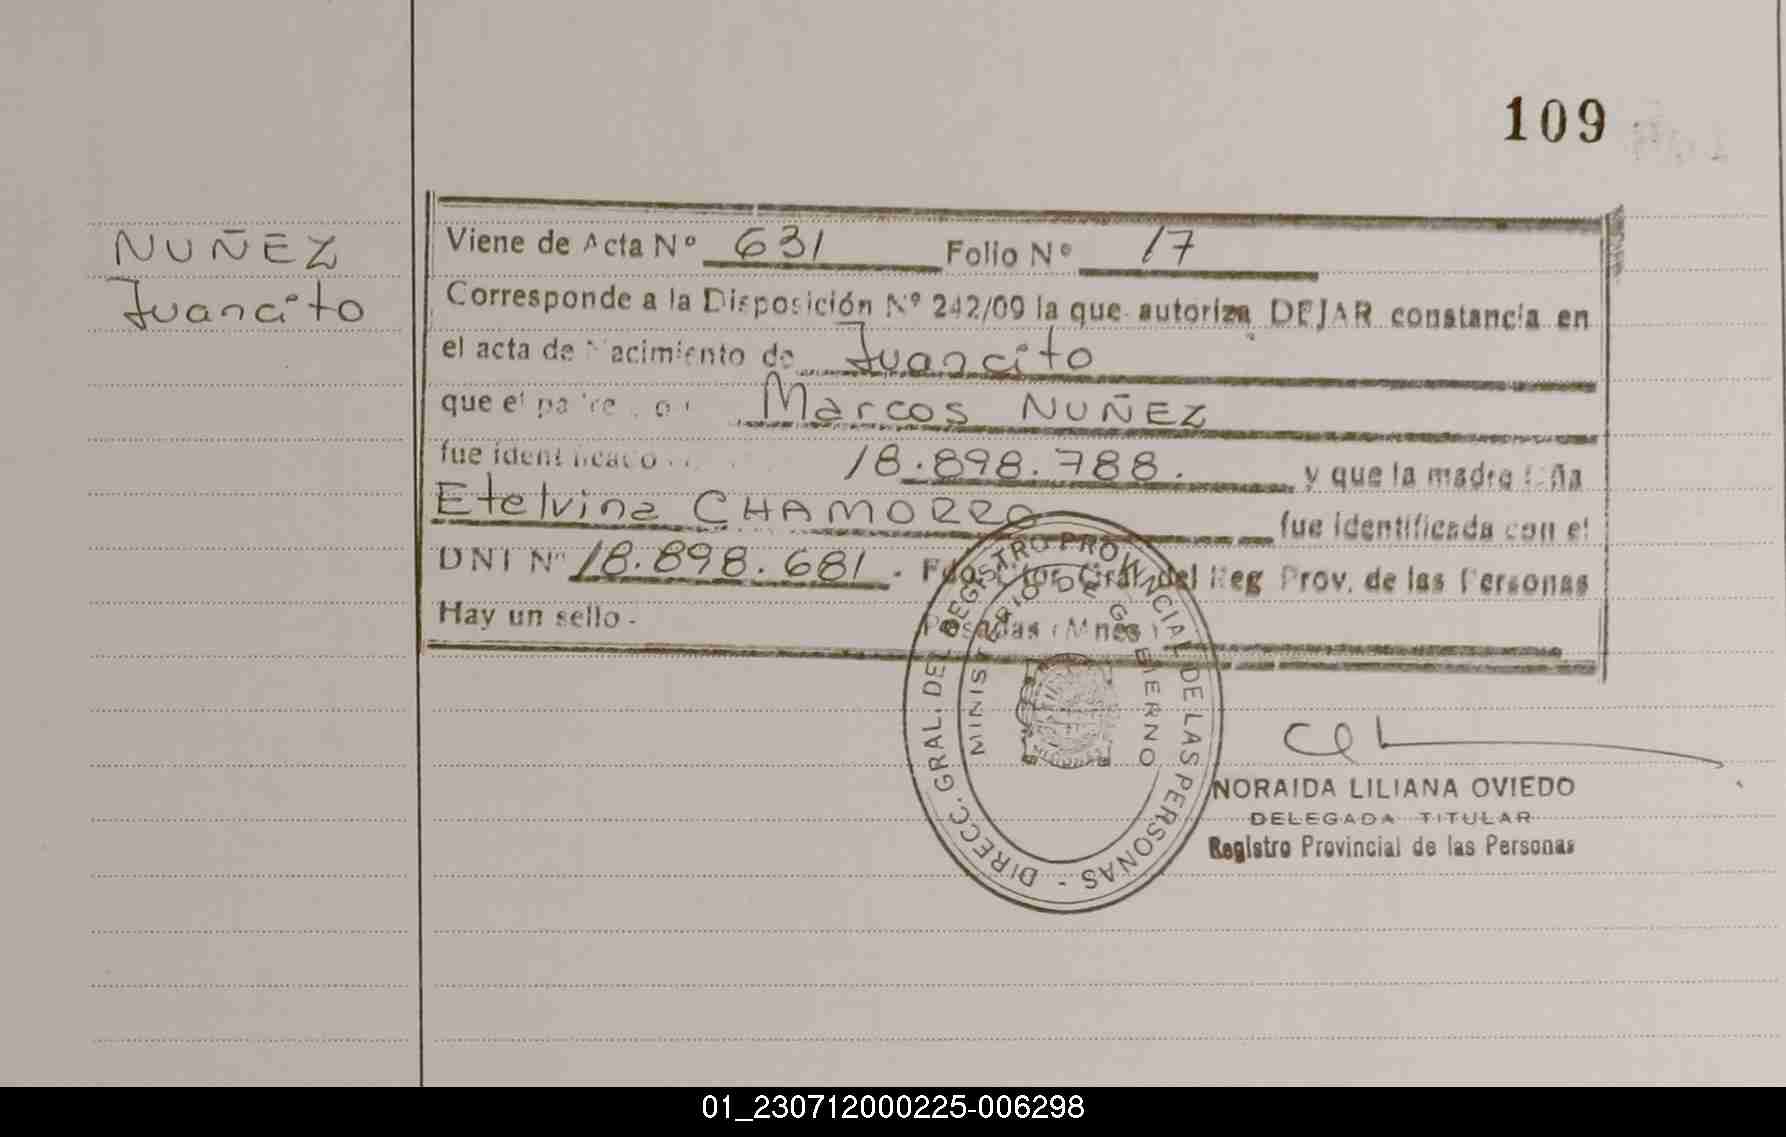 109
NUÑEZ
Juancito
Viene de Acta Nº 631 Folio Nº 17
Corresponde a la Disposición Nº 242/09 la que autoriza DEJAR constancia en
el acta de Nacimiento de Juancito
que el padre Marcos NUÑEZ
fue identificado 18.898.788. y que la madre
Etelvina CHAMORRO fue identificada con el
DNI Nº 18.898.681. Fdo. Gral. del Reg Prov. de las Personas
Posadas (Mnes)
Hay un sello.
DIRECC. GRAL. DEL REGISTRO PROVINCIAL DE LAS PERSONAS -
MINISTERIO DE GOBIERNO
NORAIDA LILIANA OVIEDO
DELEGADA TITULAR
Registro Provincial de las Personas
01_230712000225-006298